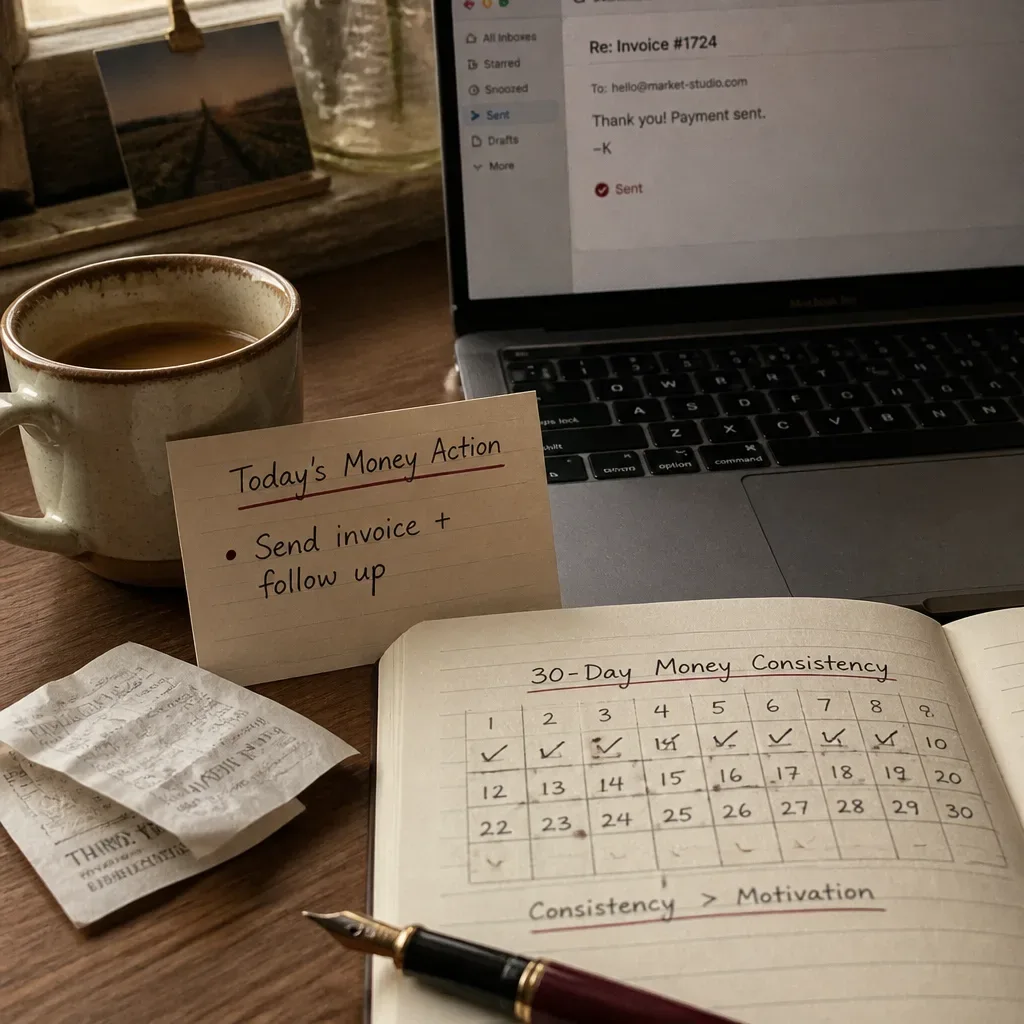 All Inboxes
Starred
Snoozed
Sent
Drafts
More
Re: Invoice #1724
To: hello@market-studio.com
Thank you! Payment sent.
–K
Sent
Q W
A S D F
Z X C V B N N
option command
Today's Money Action
• Send invoice +
follow up
30-Day Money Consistency
1 2 3 4 5 6 7 8 9
10
12 13 14 15 16 17 18 19 20
22 23 24 25 26 27 28 29 30
Consistency > Motivation